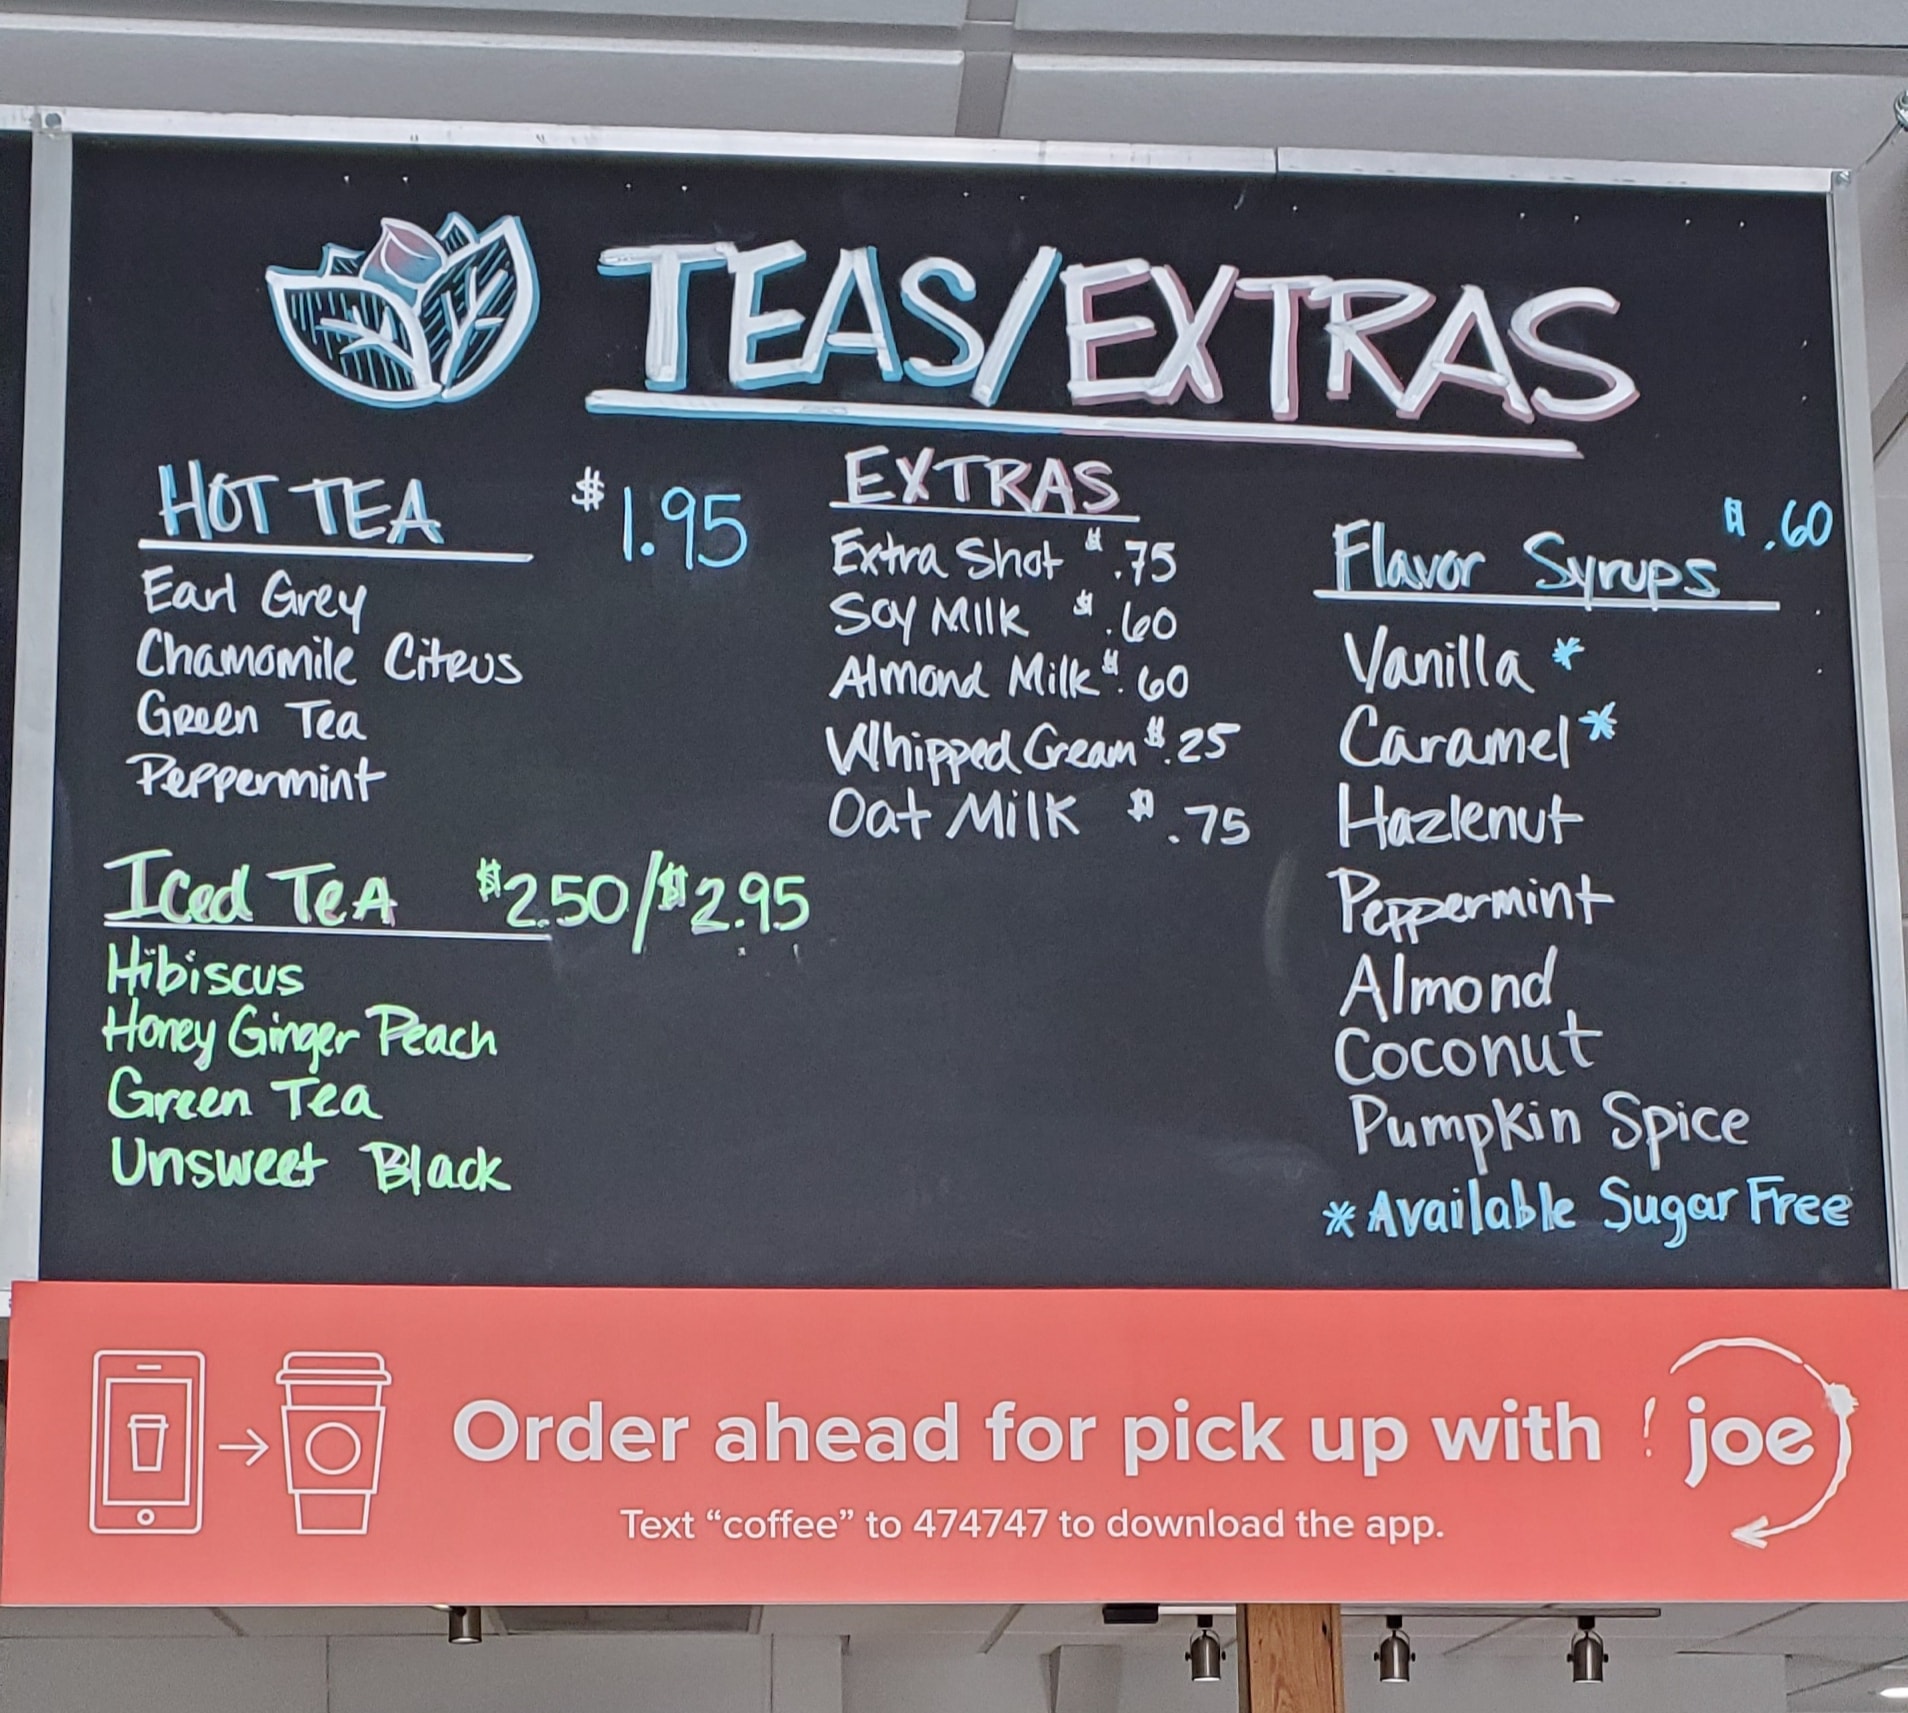 TEAS/EXTRAS
HOT TEA $1.95
Earl Grey
Chamomile Citrus
Green Tea
Peppermint
Iced Tea $2.50/$2.95
Hibiscus
Honey Ginger Peach
Green Tea
Unsweet Black
EXTRAS
Extra Shot $.75
Soy Milk $.60
Almond Milk $.60
Whipped Cream $.25
Oat Milk $.75
Flavor Syrups $.60
Vanilla *
Caramel *
Hazlenut
Peppermint
Almond
Coconut
Pumpkin Spice
* Available Sugar Free
Order ahead for pick up with joe
Text “coffee” to 474747 to download the app.